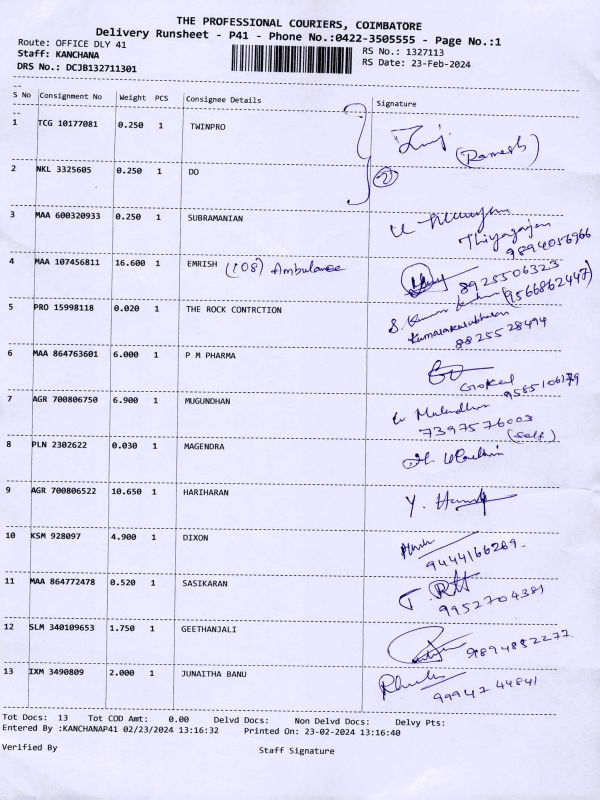 THE PROFESSIONAL COURIERS, COIMBATORE
Delivery Runsheet - P41 - Phone No.:0422-3505555 - Page No.:1
Route: OFFICE DLY 41
RS No.: 1327113
Staff: KANCHANA
RS Date: 23-Feb-2024
DRS No.: DCJB132711301
S No Consignment No Weight PCS Consignee Details Signature
1 TCG 10177081 0.250 1 TWINPRO
(Ramesh)
2 NKL 3325605 0.250 1 DO
2
3 MAA 600320933 0.250 1 SUBRAMANIAN
Thiyagarajan
9894056966
4 MAA 107456811 16.600 1 EMRISH (108) Ambulance
8925506323
(9566862447)
5 PRO 15998118 0.020 1 THE ROCK CONTRCTION
S. Kumar
8825528494
6 MAA 864763601 6.000 1 P M PHARMA
Gokul
9585106179
7 AGR 700806750 6.900 1 MUGUNDHAN
7397576003
(self)
8 PLN 2302622 0.030 1 MAGENDRA
9 AGR 700806522 10.650 1 HARIHARAN
10 KSM 928097 4.900 1 DIXON
9444166269
11 MAA 864772478 0.520 1 SASIKARAN
9952704381
12 SLM 340109653 1.750 1 GEETHANJALI
9894852277
13 IXM 3490809 2.000 1 JUNAITHA BANU
9994744841
Tot Docs: 13 Tot COD Amt: 0.00 Delvd Docs: Non Delvd Docs: Delvy Pts:
Entered By :KANCHANAP41 02/23/2024 13:16:32 Printed On: 23-02-2024 13:16:40
Verified By Staff Signature